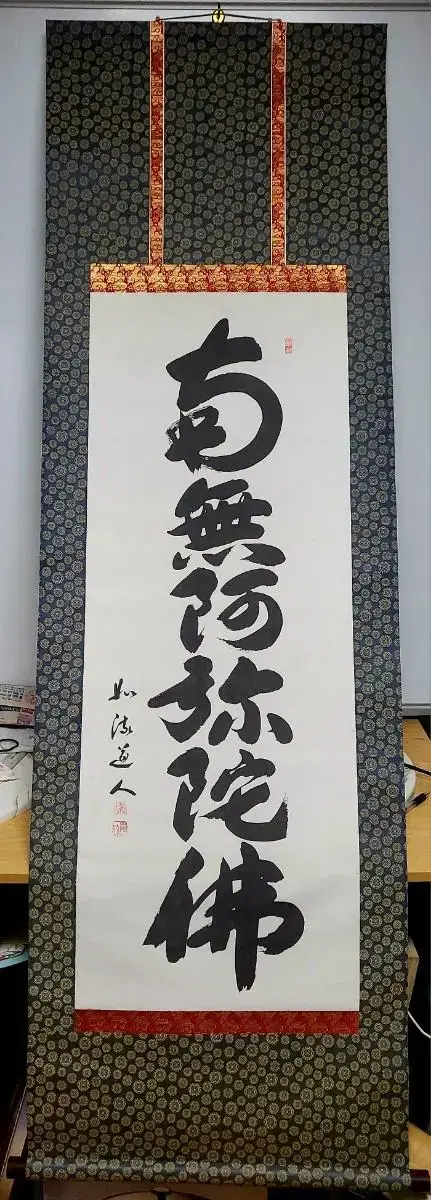 南無阿弥陀佛
如流道人